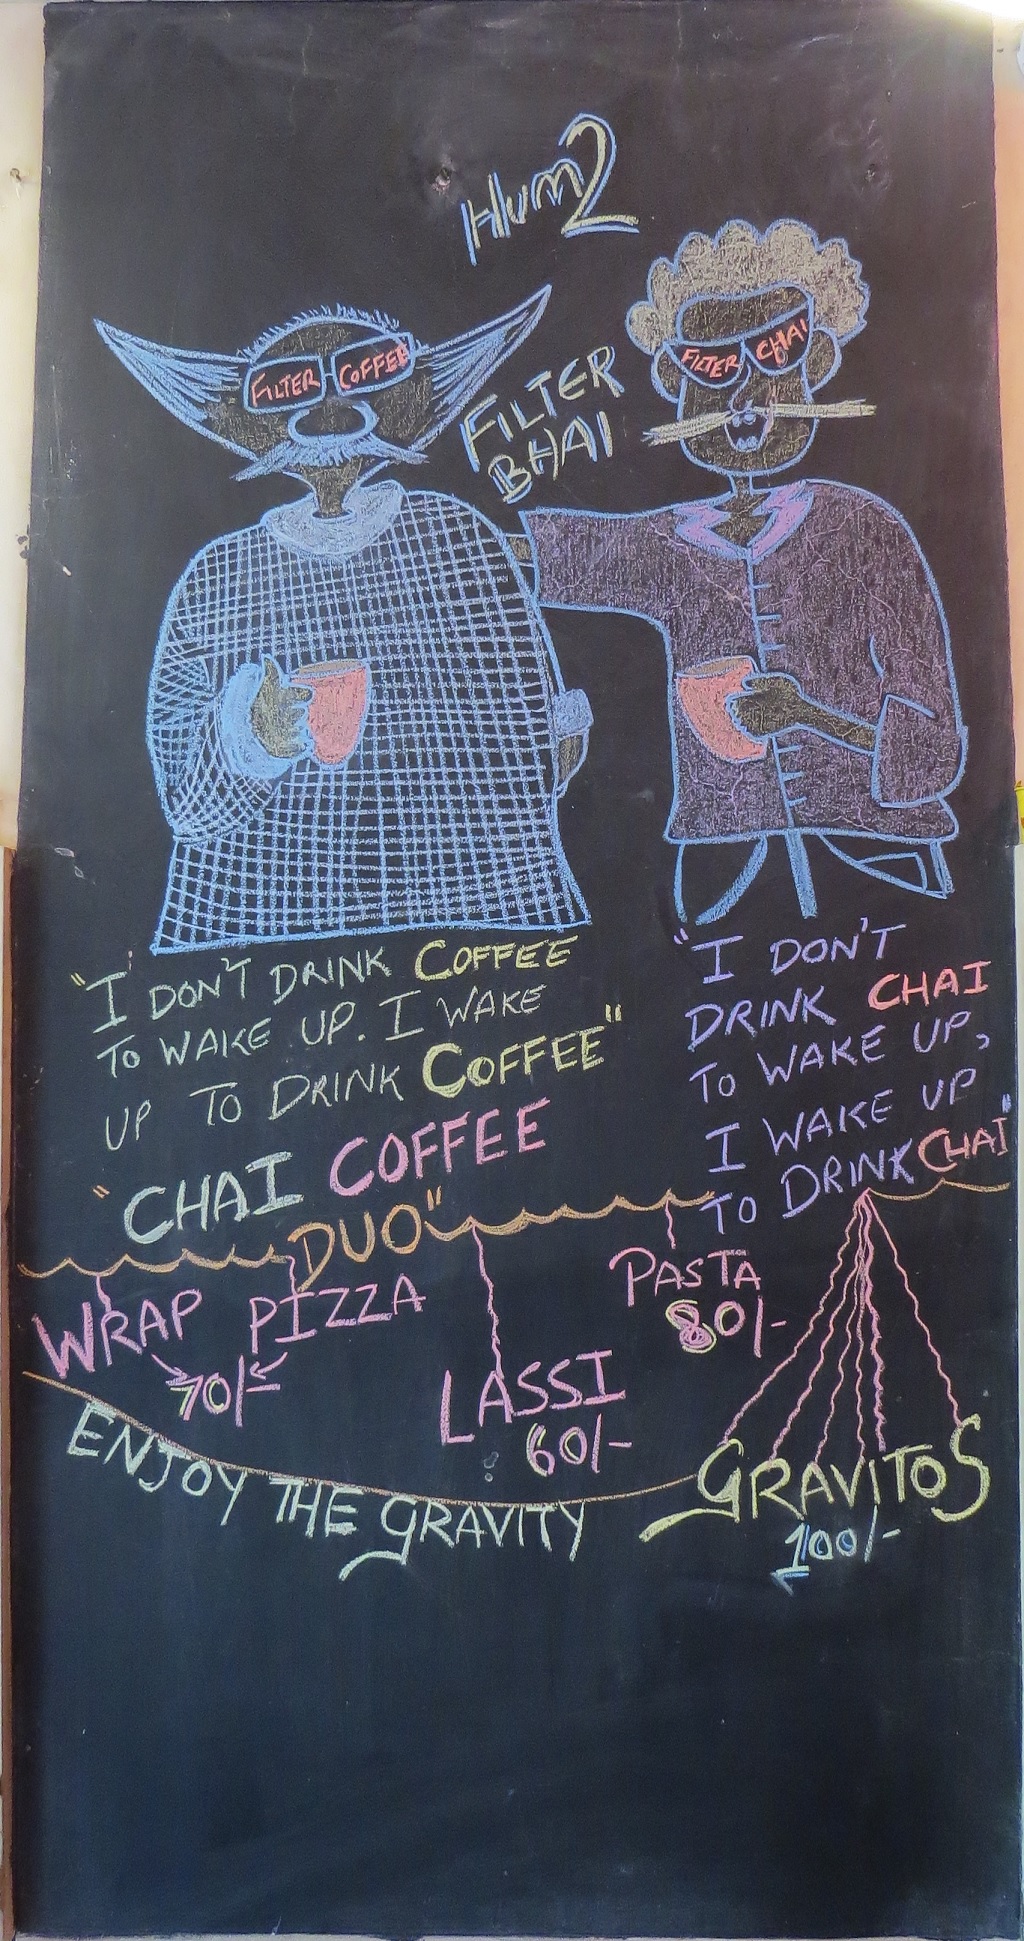 HUM2
FILTER COFFEE
FILTER CHAI
FILTER
BHAI
"I DON'T DRINK COFFEE
TO WAKE UP. I WAKE
UP TO DRINK COFFEE"
"I DON'T
DRINK CHAI
TO WAKE UP,
I WAKE UP
TO DRINK CHAI"
"CHAI COFFEE
DUO"
WRAP PIZZA
70/-
LASSI
60/-
PASTA
80/-
GRAVITOS
100/-
ENJOY THE GRAVITY